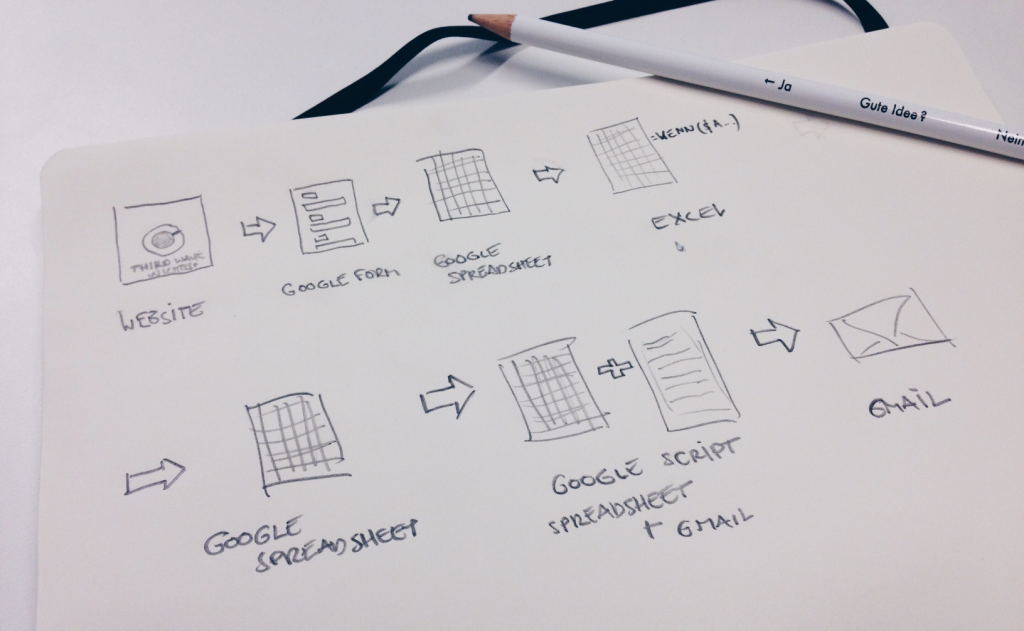 ← Ja
Gute Idee?
Nein
=WENN($A...)
THIRD WAVE
WEBSITE
GOOGLE FORM
GOOGLE
SPREADSHEET
EXCEL
GOOGLE
SPREADSHEET
GOOGLE SCRIPT
SPREADSHEET
+ GMAIL
GMAIL